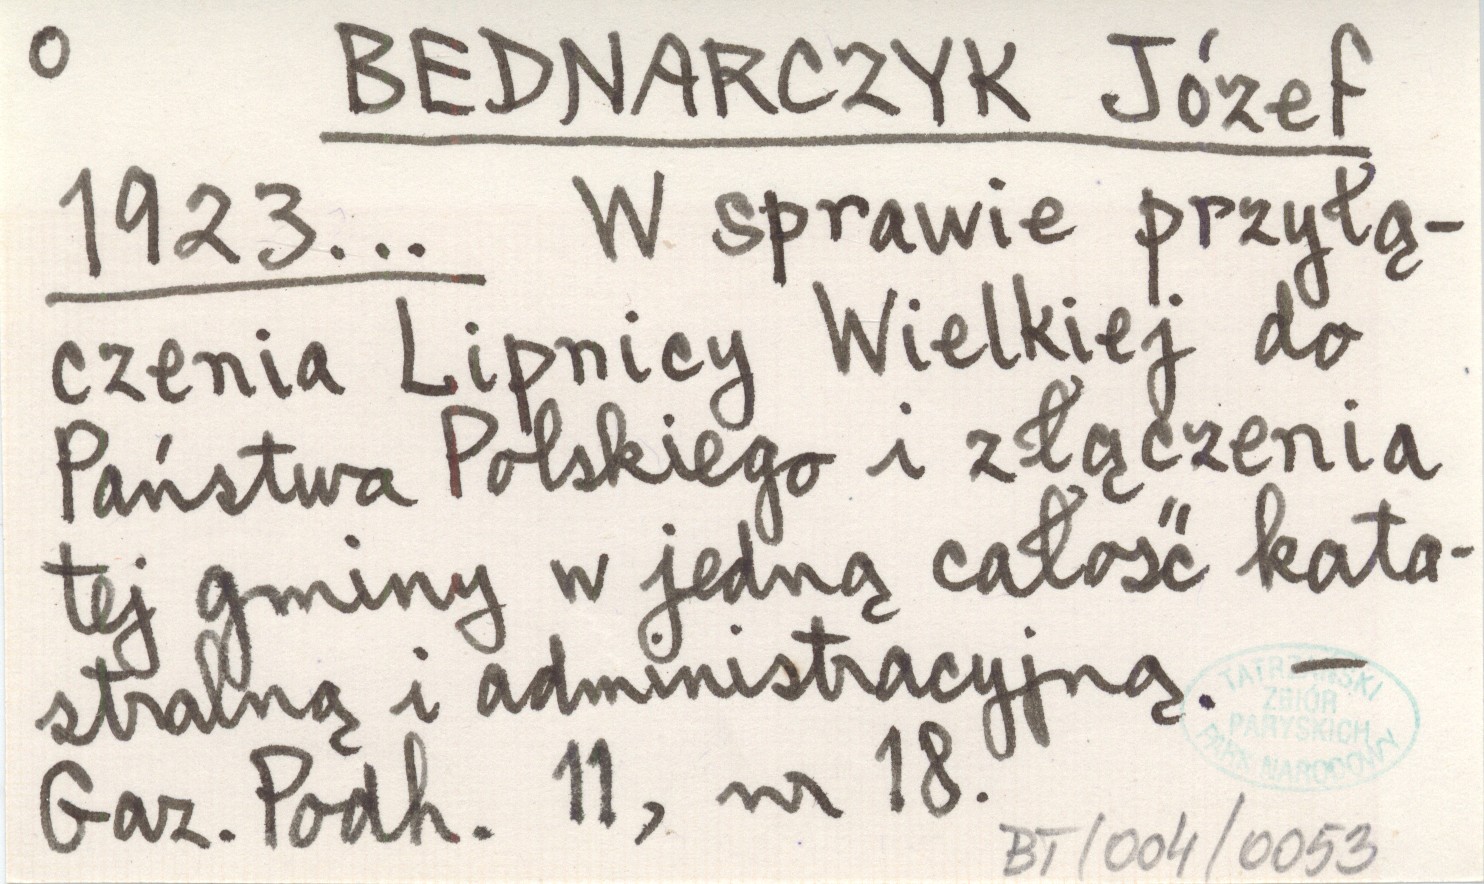 o BEDNARCZYK Józef
1923... W sprawie przyłą-
czenia Lipnicy Wielkiej do
Państwa Polskiego i złączenia
tej gminy w jedną całość kata-
stralną i administracyjną. —
Gaz. Podh. 11, nr 18.
TATRZAŃSKI
ZBIÓR
PARYSKICH
PARK NARODOWY
BT/004/0053